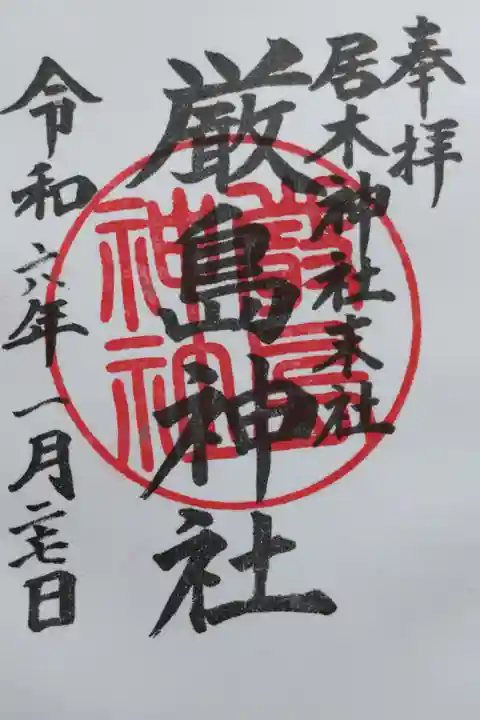 奉拝
居木神社末社
厳島神社
令和六年一月二七日